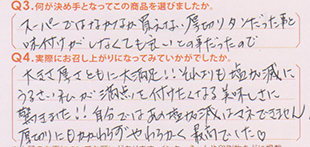 Q3.何が決め手となってこの商品を選びましたか。
スーパーではなかなか買えない厚切りタンだった事と
味付けがしなくても良いとの事だったので
Q4.実際にお召し上がりになってみていかがでしたか。
大きさ厚さともに大満足!!それよりも塩加減に
うるさい私が満点を付けたくなる美味しさに
驚きました!!自分ではあの塩加減はマネできません!
厚切りにもかかわらずやわらかく最高でした♡